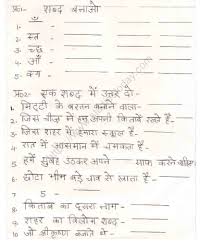 प्र०1- शब्द बनाओ
1-
2- स्त
3- च्छ
4- आँ
5- क्य
प्र०2- एक शब्द में उत्तर दो-
1- मिट्टी के बरतन बनाने वाला-
2- जिस चीज़ में हम अपनी किताबें रखते हैं-
3- जिस शहर में हमारा स्कूल है-
4- रात में आसमान में चमकता है-
5- हमें सुबह उठकर अपने साफ करने चाहिए
6- छोटा भीम बड़े चाव से खाता है-
7 5 -
8- किताब का दूसरा नाम-
9- शहर का विलोम शब्द-
10- जो श्रीकृष्ण बजाते थे-